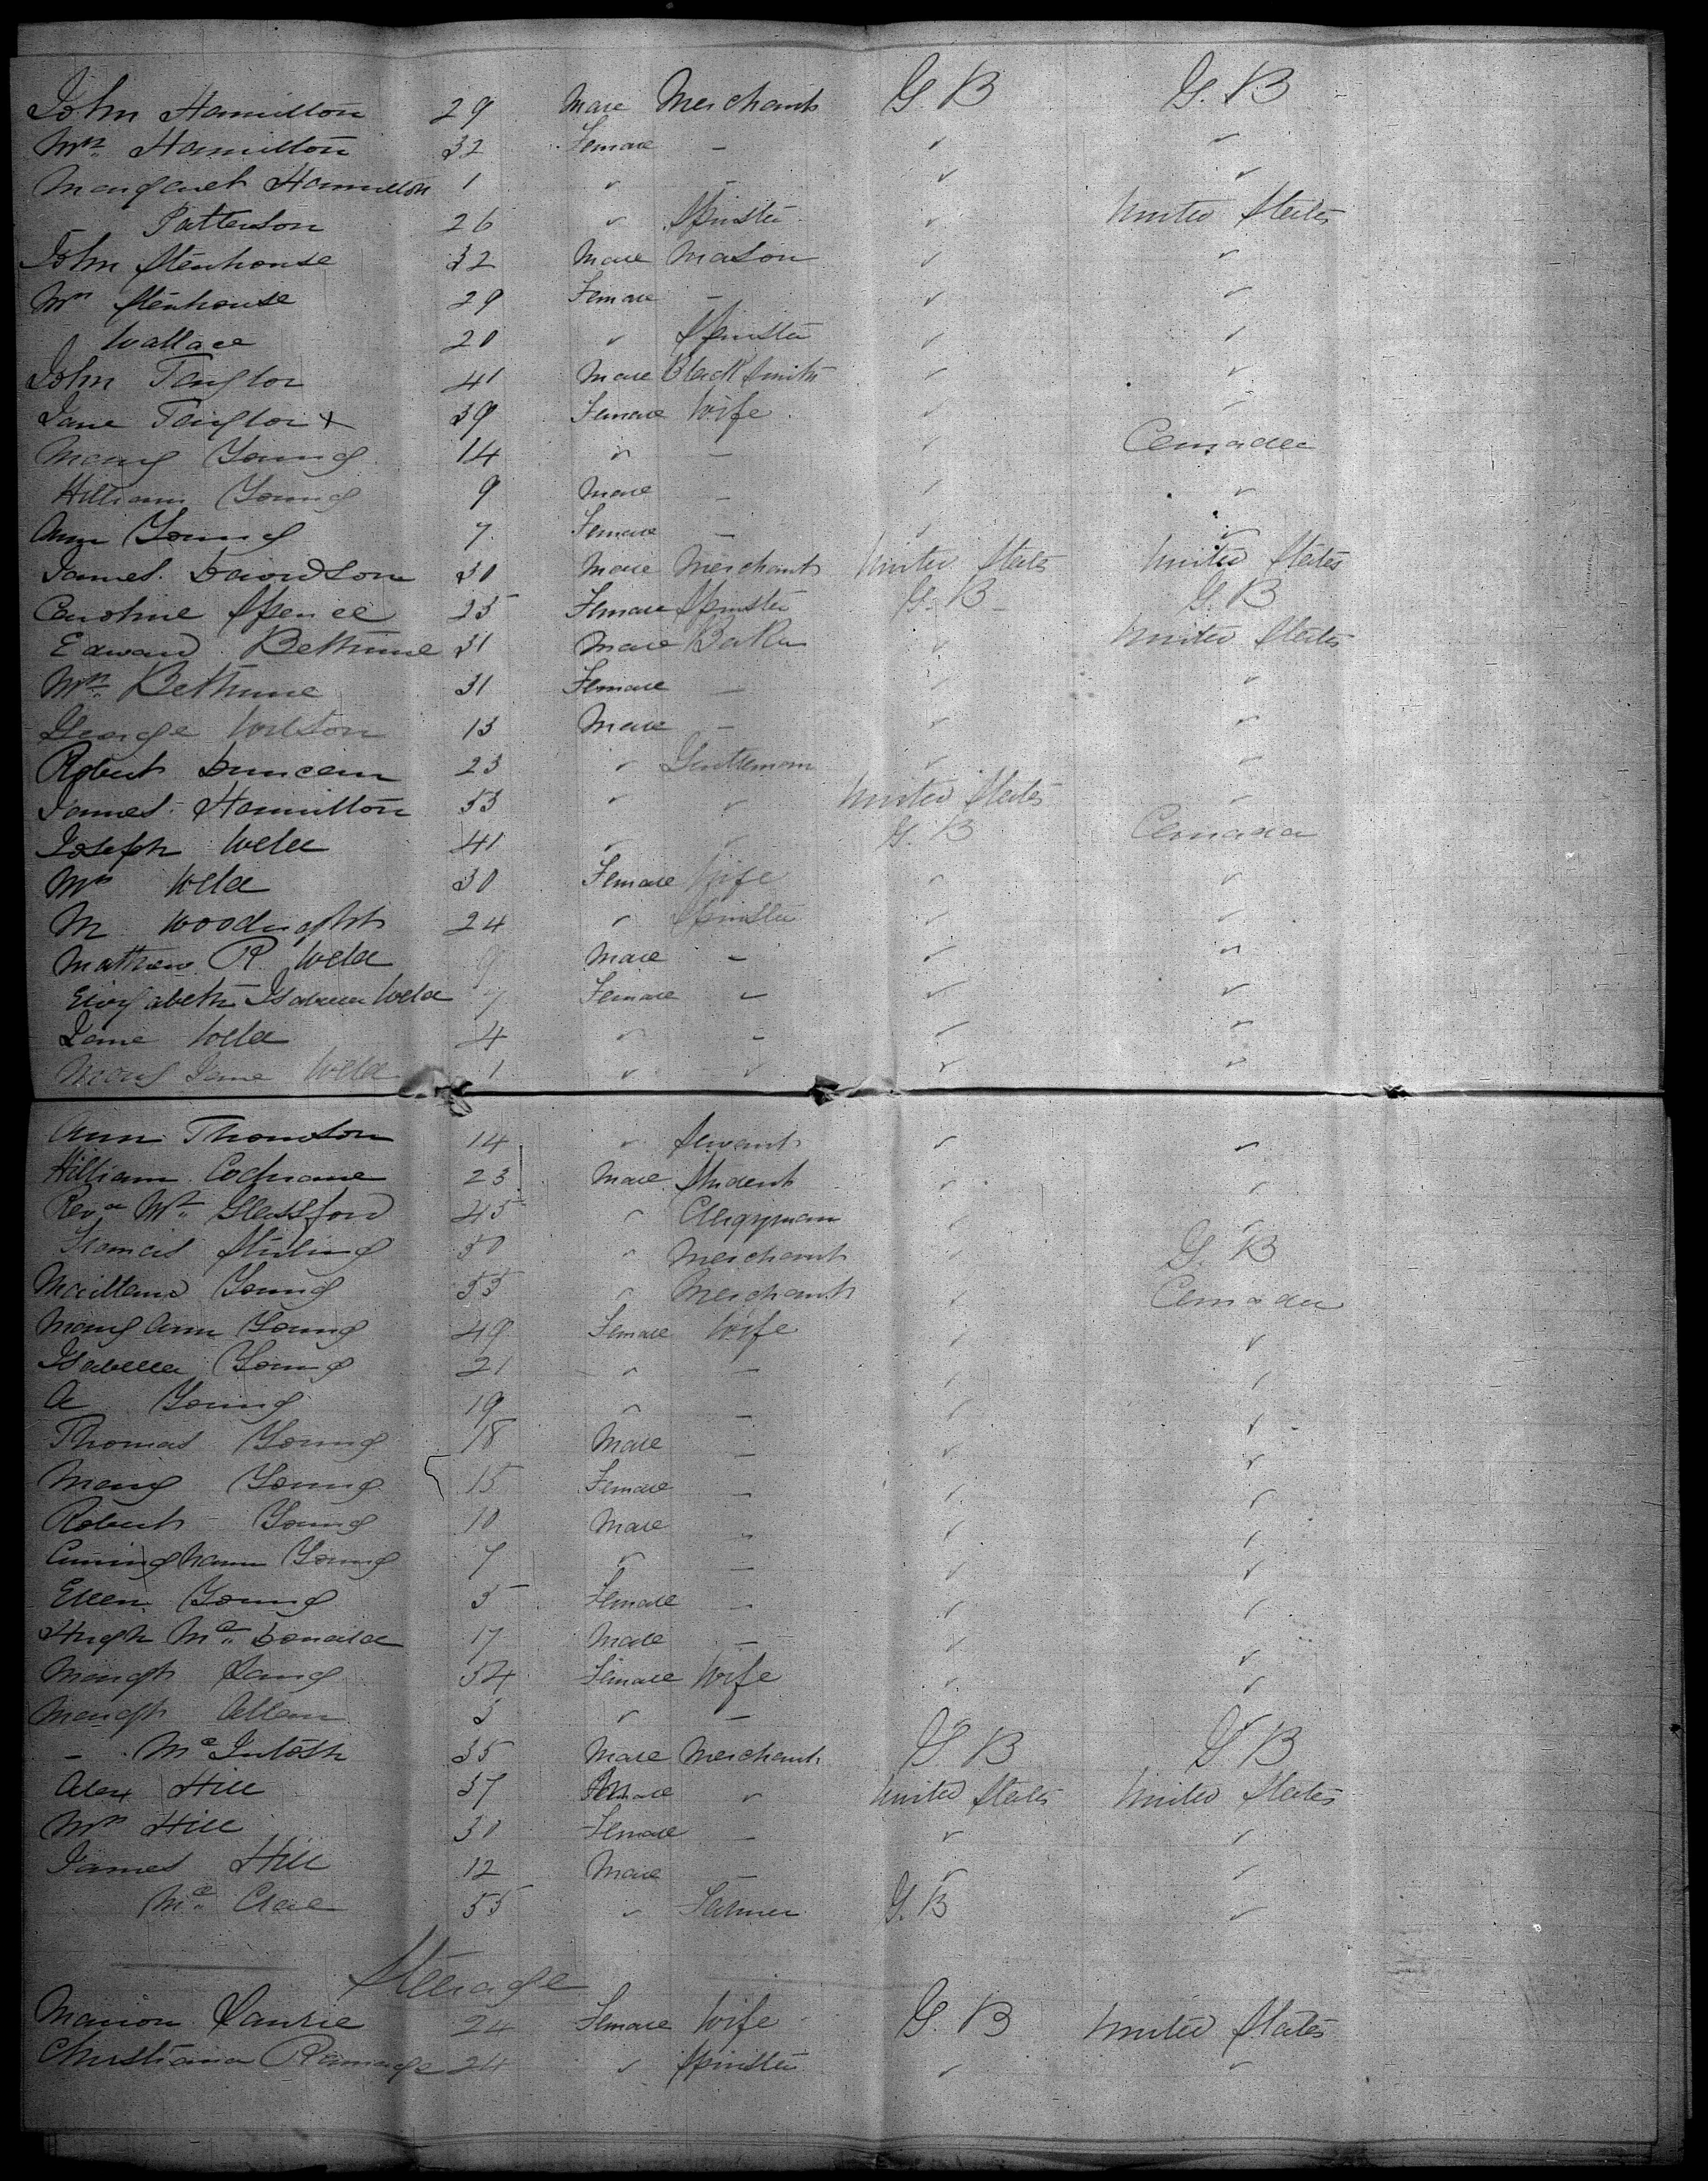 John Hamilton 29 Male Merchant G. B G. B
Mrs. Hamilton 32 Female - ✓ ✓
Margaret Hamilton 1 ✓ - ✓ ✓
Patterson 26 ✓ Spinster ✓ United States
John Stenhouse 32 Male Mason ✓ ✓
Mrs Stenhouse 29 Female - ✓ ✓
Wallace 20 ✓ Spinster ✓ ✓
John Taylor 41 Male Blacksmith ✓ ✓
Jane Taylor x 39 Female Wife ✓ ✓
Mary Young 14 ✓ - ✓ Canada
William Young 9 Male - ✓ ✓
Ann Young 7 Female - ✓ ✓
James Davidson 30 Male Merchant United States United States
Caroline Spence 25 Female Spinster G. B G. B
Edward Bethune 31 Male Baker ✓ United States
Mrs. Bethune 31 Female - ✓ ✓
George Wilson 13 Male - ✓ ✓
Robert Duncan 23 ✓ Gentleman ✓ ✓
James Hamilton 53 ✓ ✓ United States ✓
Joseph Weld 41 ✓ ✓ G. B Canada
Mrs Weld 30 Female Wife ✓ ✓
M Woodright 24 ✓ Spinster ✓ ✓
Mathew R. Weld 9 Male - ✓ ✓
Elizabeth Isabella Weld 7 Female - ✓ ✓
Jane Weld 4 ✓ - ✓ ✓
Mary Jane Weld 1 ✓ ✓ ✓ ✓
Ann Thomson 14 ✓ Servant ✓ ✓
William Cochrane 23 Male Student ✓ ✓
Revd Mr. Glassford 45 ✓ Clergyman ✓ ✓
Francis Stirling 50 ✓ Merchant ✓ G. B
Maitland Young 55 ✓ Merchant ✓ Canada
Mary Ann Young 49 Female Wife ✓ ✓
Isabella Young 21 ✓ - ✓ ✓
A Young 19 ✓ - ✓ ✓
Thomas Young 18 Male - ✓ ✓
Mary Young 15 Female - ✓ ✓
Robert Young 10 Male - ✓ ✓
Cuninghame Young 7 ✓ - ✓ ✓
Ellen Young 5 Female - ✓ ✓
Hugh Mc. Donald 17 Male - ✓ ✓
Margt Lang 54 Female Wife ✓ ✓
Margt Allan 3 ✓ - ✓
- Mc Intosh 35 Male Merchant G. B G. B
Alex Hill 37 Male ✓ United States United States
Mrs Hill 30 Female - ✓ ✓
James Hill 12 Male - ✓ ✓
Mc. Crae 55 ✓ Farmer G. B ✓
Steerage
Marion Laurie 24 Female Wife G. B United States
Christiana Ramage 24 ✓ Spinster ✓ ✓